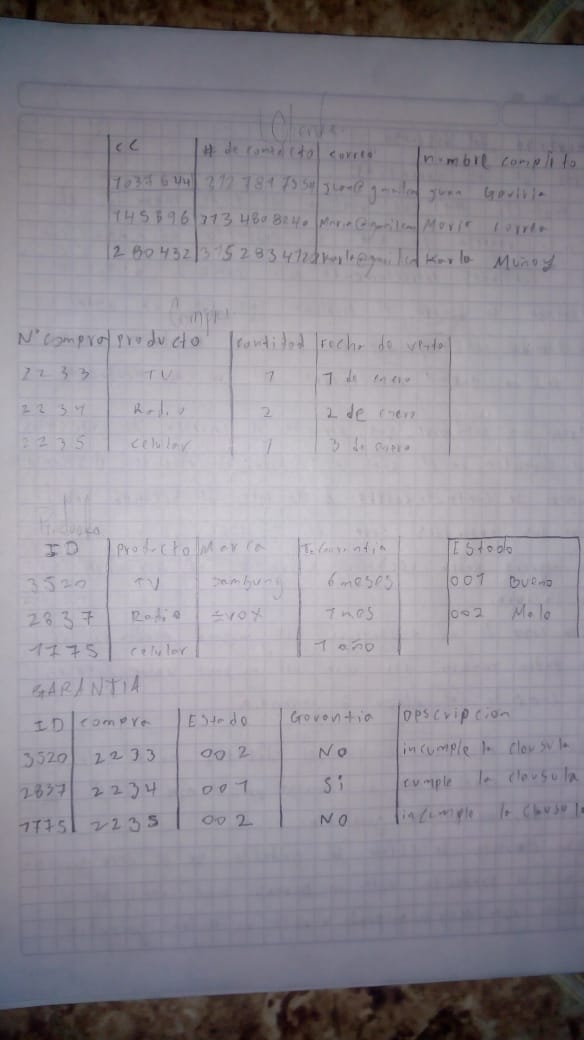 Cliente
CC # de contacto correo nombre completo
1037644 Juan Gaviria
145696 313 480 8240 Maria@gmail.com Maria correa
280432 Karla@gmail.com Karla Muñoz
Compra
N° compra producto cantidad Fecha de venta
2233 TV 1 1 de enero
2234 Radio 2 2 de enero
2235 celular 1 3 de enero
Producto
ID producto Marca T. Garantia Estado
3520 TV Sambung 6 meses 001 Bueno
2837 Radio 1 mes 002 Malo
1775 celular 1 año
GARANTIA
ID compra Estado Garantia Descripcion
3520 2233 002 NO incumple la clausula
2837 2234 001 Si cumple la clausula
1775 2235 002 NO incumple la clausula